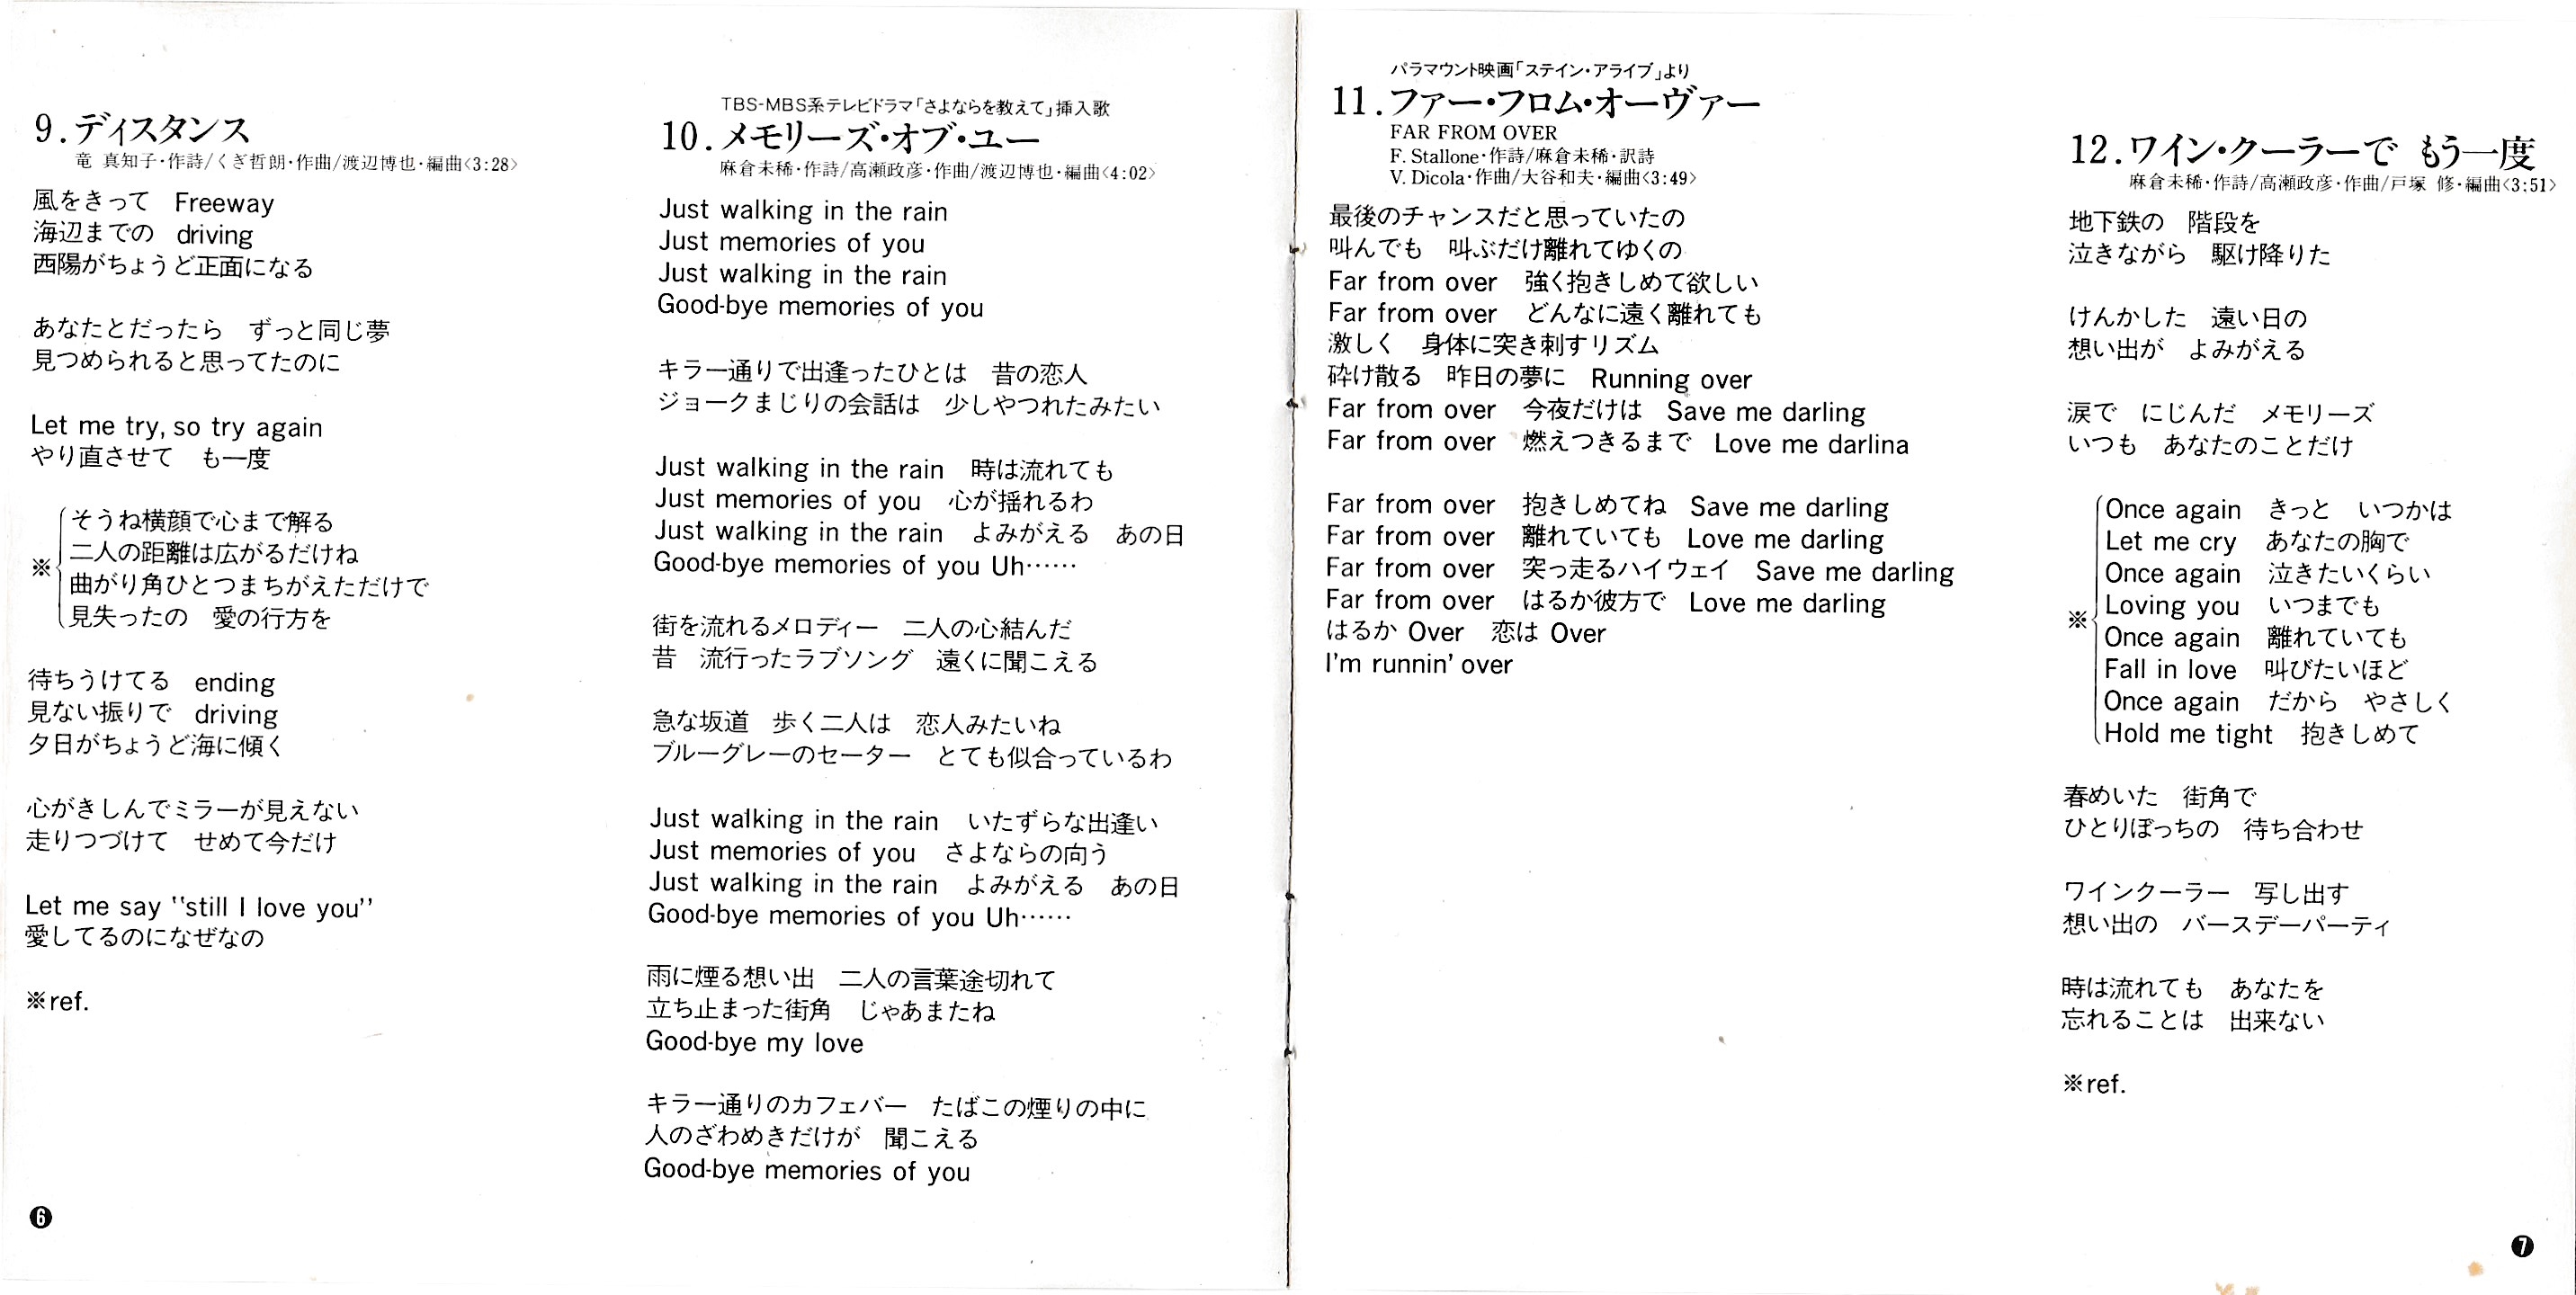 9.ディスタンス
竜 真知子・作詩/くぎ哲朗・作曲/渡辺博也・編曲<3:28>
風をきって　Freeway
海辺までの　driving
西陽がちょうど正面になる
あなたとだったら　ずっと同じ夢
見つめられると思ってたのに
Let me try, so try again
やり直させて　も一度
※
そうね横顔で心まで解る
二人の距離は広がるだけね
曲がり角ひとつまちがえただけで
見失ったの　愛の行方を
待ちうけてる　ending
見ない振りで　driving
夕日がちょうど海に傾く
心がきしんでミラーが見えない
走りつづけて　せめて今だけ
Let me say "still I love you"
愛してるのになぜなの
※ref.
6
TBS-MBS系テレビドラマ「さよならを教えて」挿入歌
10.メモリーズ・オブ・ユー
麻倉未稀・作詩/高瀬政彦・作曲/渡辺博也・編曲<4:02>
Just walking in the rain
Just memories of you
Just walking in the rain
Good-bye memories of you
キラー通りで出逢ったひとは　昔の恋人
ジョークまじりの会話は　少しやつれたみたい
Just walking in the rain　時は流れても
Just memories of you　心が揺れるわ
Just walking in the rain　よみがえる　あの日
Good-bye memories of you Uh……
街を流れるメロディー　二人の心結んだ
昔　流行ったラブソング　遠くに聞こえる
急な坂道　歩く二人は　恋人みたいね
ブルーグレーのセーター　とても似合っているわ
Just walking in the rain　いたずらな出逢い
Just memories of you　さよならの向う
Just walking in the rain　よみがえる　あの日
Good-bye memories of you Uh……
雨に煙る想い出　二人の言葉途切れて
立ち止まった街角　じゃあまたね
Good-bye my love
キラー通りのカフェバー　たばこの煙りの中に
人のざわめきだけが　聞こえる
Good-bye memories of you
パラマウント映画「ステイン・アライブ」より
11.ファー・フロム・オーヴァー
FAR FROM OVER
F. Stallone・作詩/麻倉未稀・訳詩
V. Dicola・作曲/大谷和夫・編曲<3:49>
最後のチャンスだと思っていたの
叫んでも　叫ぶだけ離れてゆくの
Far from over　強く抱きしめて欲しい
Far from over　どんなに遠く離れても
激しく　身体に突き刺すリズム
砕け散る　昨日の夢に　Running over
Far from over　今夜だけは　Save me darling
Far from over　燃えつきるまで　Love me darlina
Far from over　抱きしめてね　Save me darling
Far from over　離れていても　Love me darling
Far from over　突っ走るハイウェイ　Save me darling
Far from over　はるか彼方で　Love me darling
はるか Over　恋は Over
I'm runnin' over
12.ワイン・クーラーで もう一度
麻倉未稀・作詩/高瀬政彦・作曲/戸塚 修・編曲<3:51>
地下鉄の　階段を
泣きながら　駆け降りた
けんかした　遠い日の
想い出が　よみがえる
涙で　にじんだ　メモリーズ
いつも　あなたのことだけ
※
Once again　きっと　いつかは
Let me cry　あなたの胸で
Once again　泣きたいくらい
Loving you　いつまでも
Once again　離れていても
Fall in love　叫びたいほど
Once again　だから　やさしく
Hold me tight　抱きしめて
春めいた　街角で
ひとりぼっちの　待ち合わせ
ワインクーラー　写し出す
想い出の　バースデーパーティ
時は流れても　あなたを
忘れることは　出来ない
※ref.
7